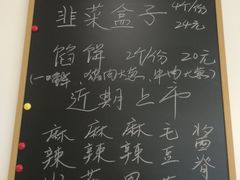 韭菜盒子 4个/份 24元
馅饼 2个/份 20元
(一，猪肉大葱、牛肉大葱)
近期上市
麻 麻 麻 毛 酱
辣 辣 辣 豆 脊